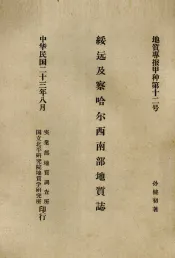 地質專報甲种第十二号
綏远及察哈尔西南部地質誌
孙健初著
中华民国二十三年八月
实業部地質調查所
国立北平研究院地質学研究所
印行